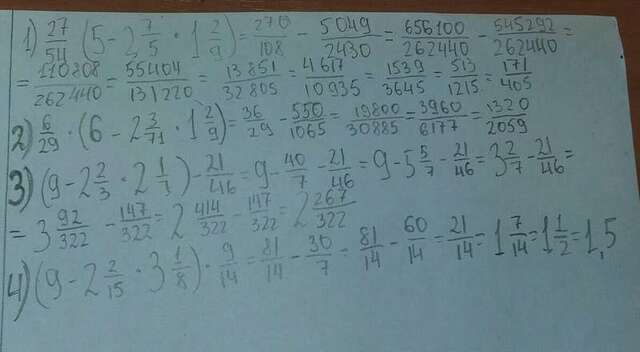 1) 27/54 (5 - 2 7/5 · 1 2/9) = 270/108 - 5049/2430 = 656100/262440 - 545292/262440 =
= 110808/262440 = 55404/131220 = 13851/32805 = 4617/10935 = 1539/3645 = 513/1215 = 171/405
2) 6/29 · (6 - 2 3/71 · 1 2/9) = 36/29 - 550/1065 = 19800/30885 = 3960/6177 = 1320/2059
3) (9 - 2 2/3 · 2 1/7) - 21/46 = 9 - 40/7 - 21/46 = 9 - 5 5/7 - 21/46 = 3 2/7 - 21/46 =
= 3 92/322 - 147/322 = 2 414/322 - 147/322 = 2 267/322
4) (9 - 2 2/15 · 3 1/8) · 9/14 = 81/14 - 30/7 = 81/14 - 60/14 = 21/14 = 1 7/14 = 1 1/2 = 1,5